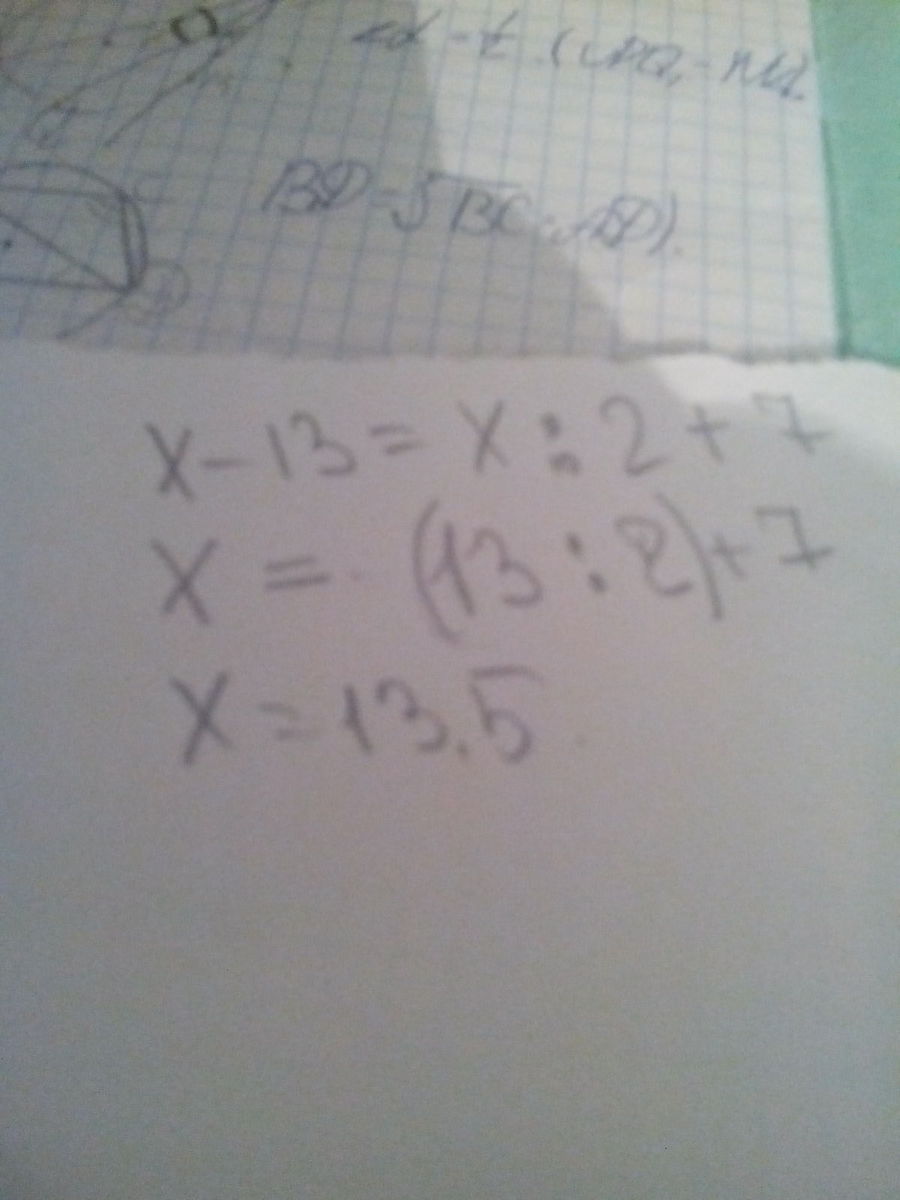 BD = √BC · AD).
x - 13 = x : 2 + 7
x = (13 : 2) + 7
x = 13.5